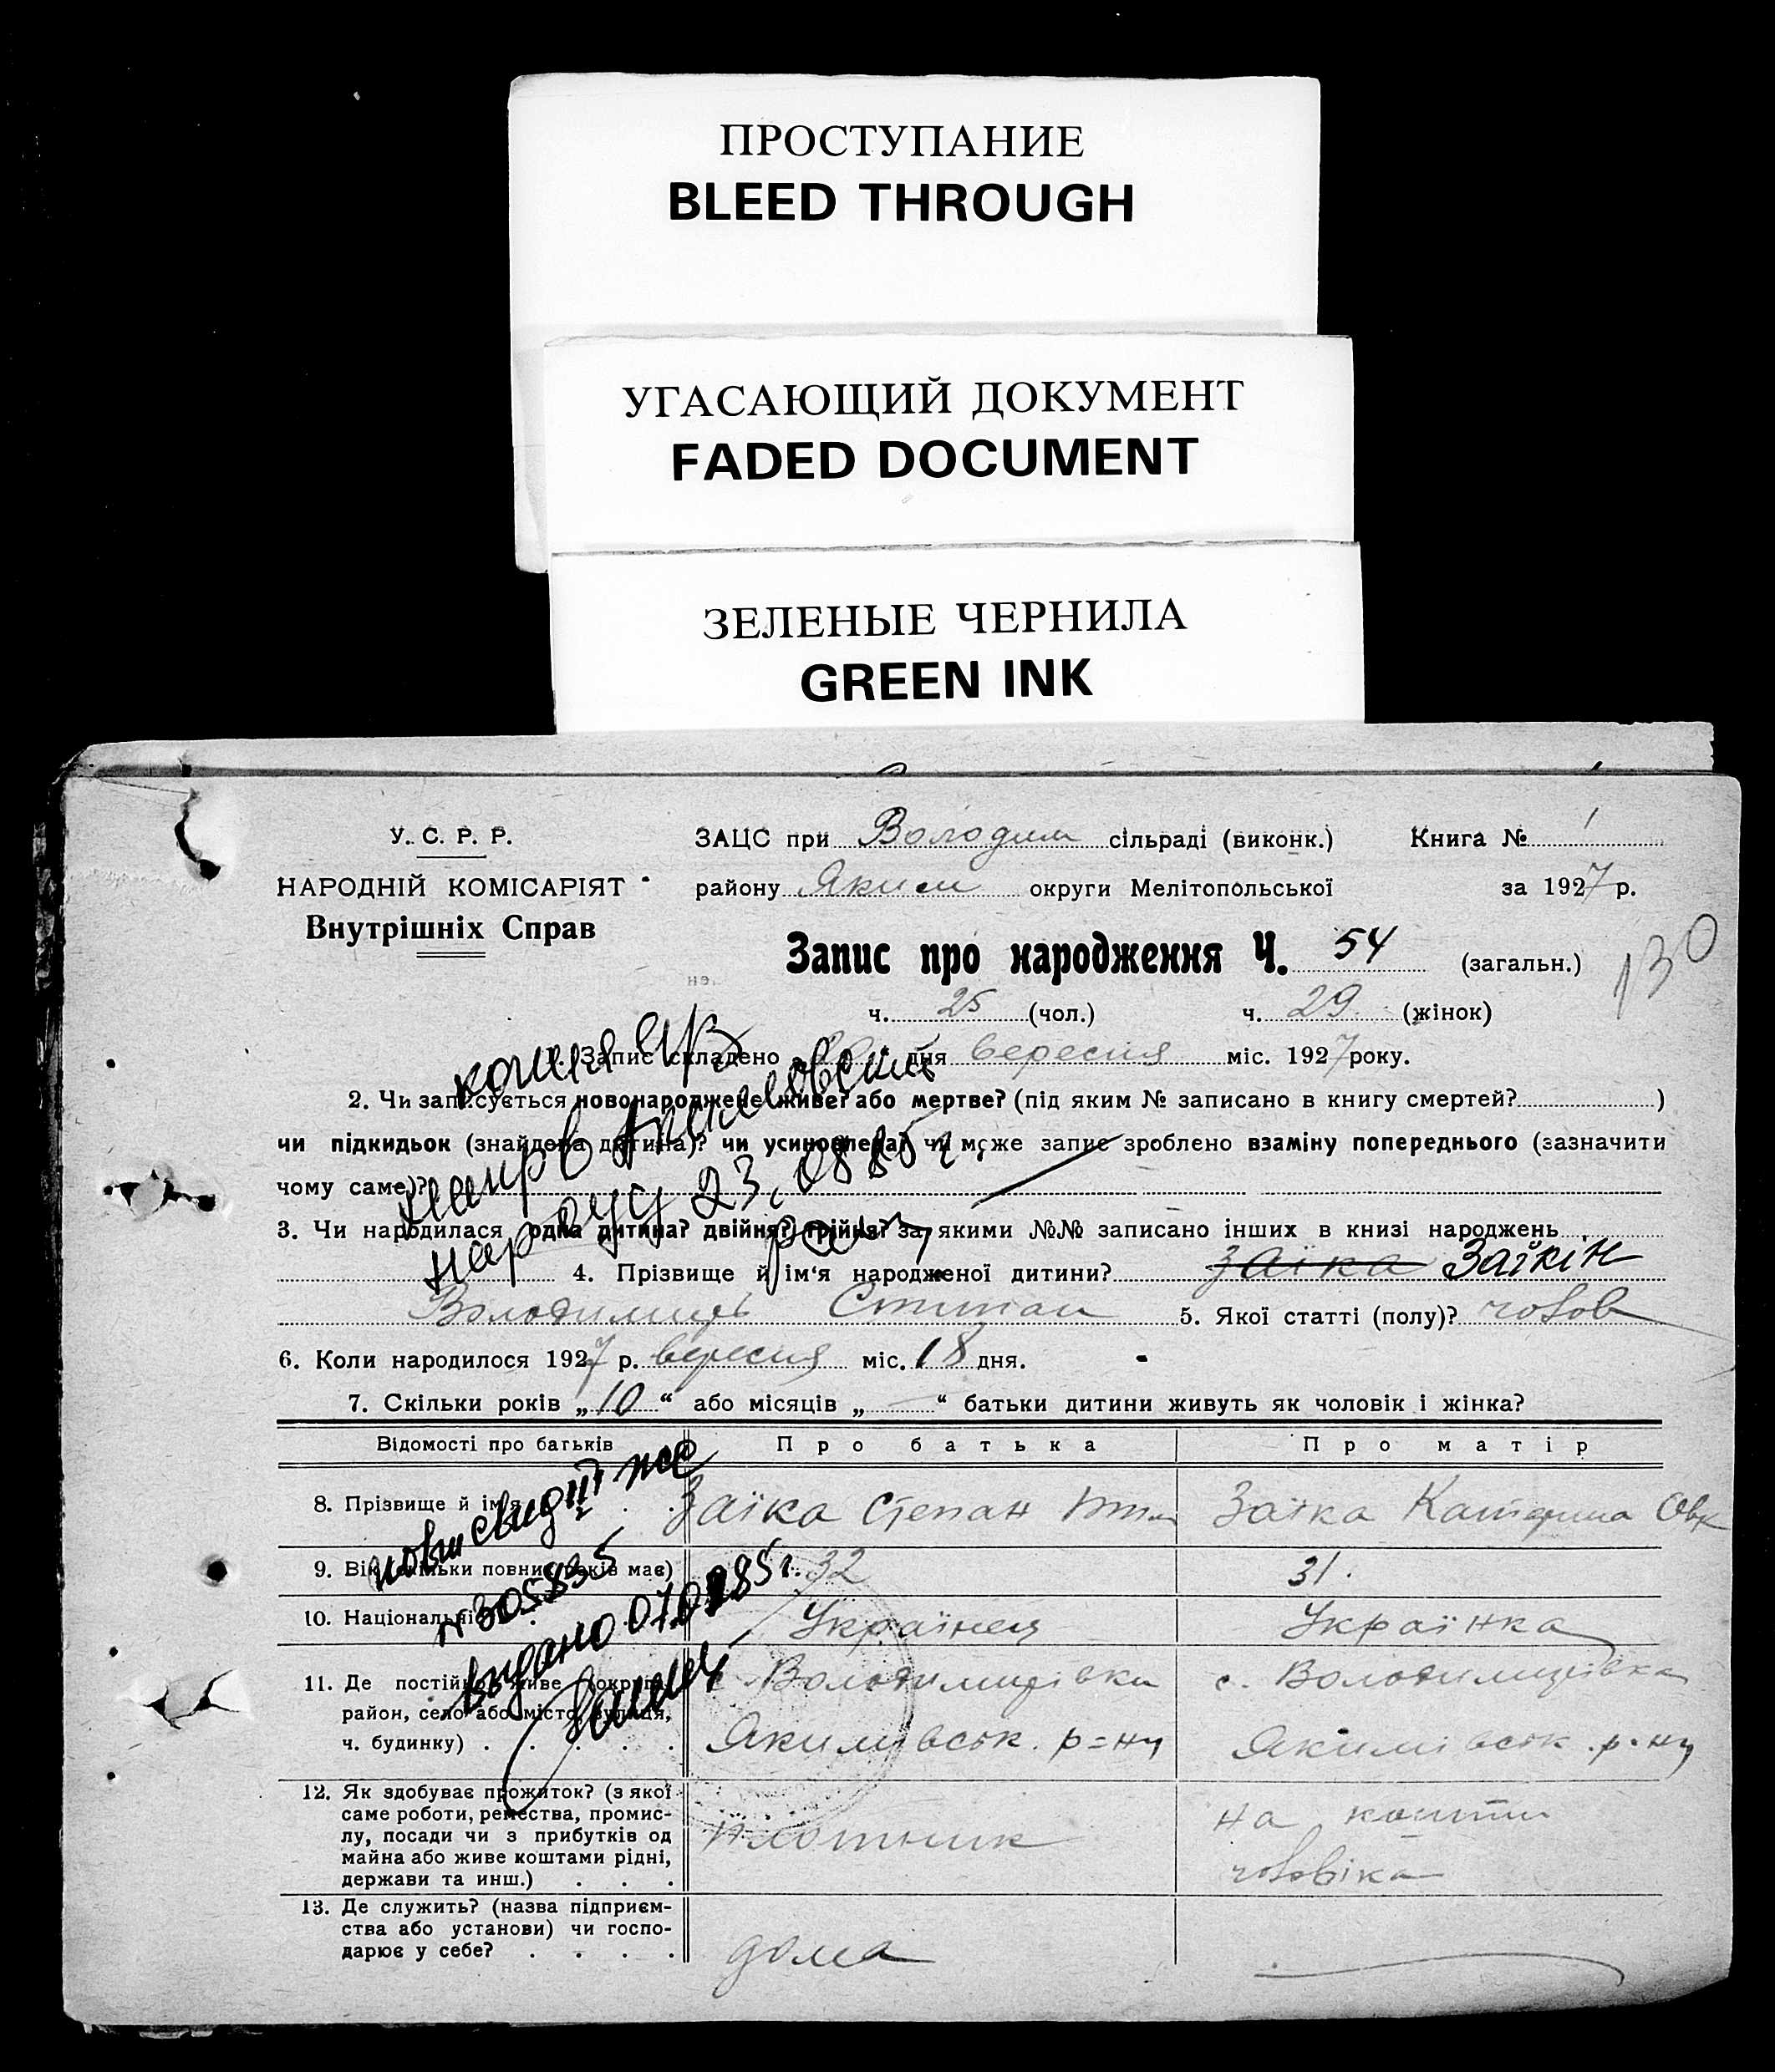 ПРОСТУПАНИЕ
BLEED THROUGH
УГАСАЮЩИЙ ДОКУМЕНТ
FADED DOCUMENT
ЗЕЛЕНЫЕ ЧЕРНИЛА
GREEN INK
У. С. Р. Р.
НАРОДНІЙ КОМІСАРІЯТ
Внутрішніх Справ
ЗАЦС при Володим сільраді (виконк.) Книга № 1
району Яким округи Мелітопольської за 1927 р.
Запис про народження Ч. 54 (загальн.)
130
ч. 25 (чол.) ч. 29 (жінок)
1. Запис складено дня вересня міс. 1927 року.
2. Чи записується новонароджене живе? або мертве? (під яким № записано в книгу смертей? )
чи підкидьок (знайдена дитина)? чи усиновлена? чи може запис зроблено взаміну попереднього (зазначити
чому саме)?
3. Чи народилася одна дитина? двійня? трійня? за якими №№ записано інших в книзі народжень
4. Прізвище й ім'я народженої дитини? Заїка Заїкін
Володимирь Степан 5. Якої статті (полу)? чолов
6. Коли народилося 1927 р. вересня міс. 18 дня.
7. Скільки років „10“ або місяців „—“ батьки дитини живуть як чоловік і жінка?
копия
23.0885 г.
Відомості про батьків Про батька Про матір
8. Прізвище й ім'я Заїка Степан Заїка Катерина Овк
9. Вік (скільки повних років має) 32 31.
10. Національність Українец Українка
11. Де постійно живе (округа, с. Володимирівка с. Володимирівка
район, село або місто, вулиця,
ч. будинку) Якимівськ. р=ну Якимівськ. р-ну
12. Як здобуває прожиток? (з якої
саме роботи, ремества, промис-
лу, посади чи з прибутків од
майна або живе коштами рідні,
держави та инш.) плотник на кошти
чоловіка
13. Де служить? (назва підприєм-
ства або установи) чи госпо-
дарює у себе? дома
№ 305835
видано